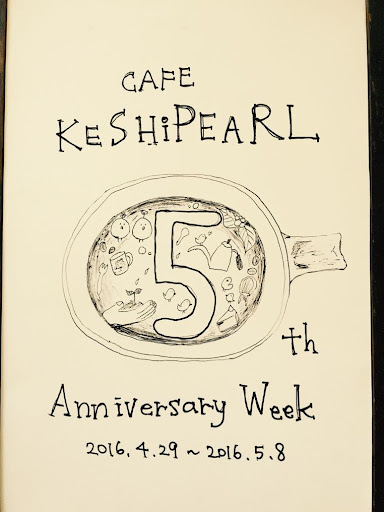 CAFE
KESHiPEARL
5
th
Anniversary Week
2016.4.29 ~ 2016.5.8